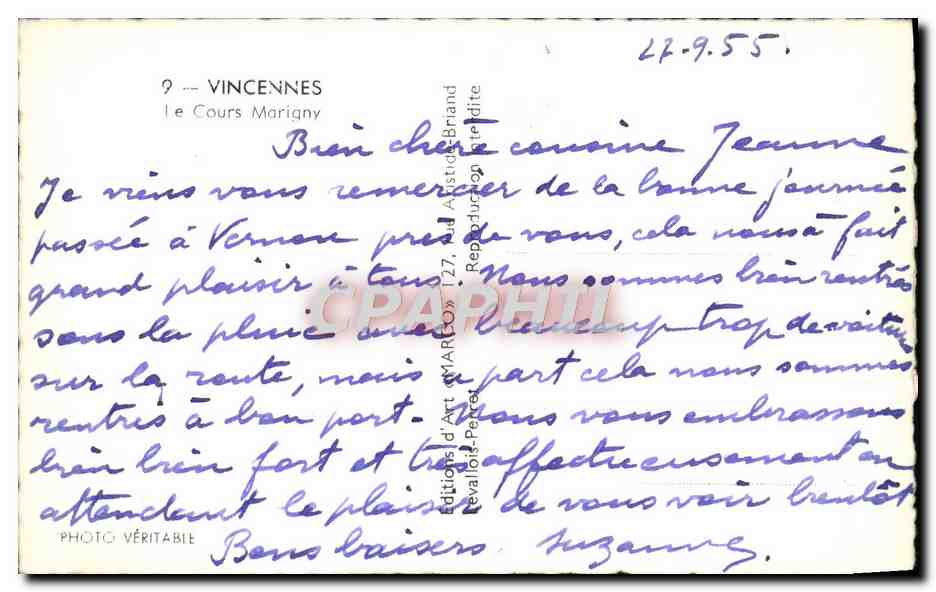 27.9.55.
9 — VINCENNES
Le Cours Marigny
Bien chère cousine Jeanne
Je viens vous remercier de la bonne journée
passée à Vernon près de vous, cela nous à fait
grand plaisir à tous. Nous sommes bien rentrés
sous la pluie avec beaucoup trop de voitures
sur la route, mais a part cela nous sommes
rentrés à bon port. Nous vous embrassons
bien bien fort et très affectueusement en
attendant le plaisir de vous voir bientôt
Bons baisers Suzanne.
PHOTO VÉRITABLE
Editions d'Art «MARGO» 127, rue Aristide-Briand
Levallois-Perret Reproduction interdite
CPAPHIL